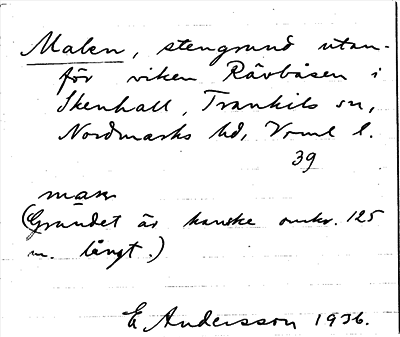 Malen, stengrund utan-
för viken Rävbåsen i
Skenhall, Trankils sn,
Nordmarks hd, Vrml l.
39
(Grundet är kanske omkr. 125
m. långt.)
E Andersson 1936.